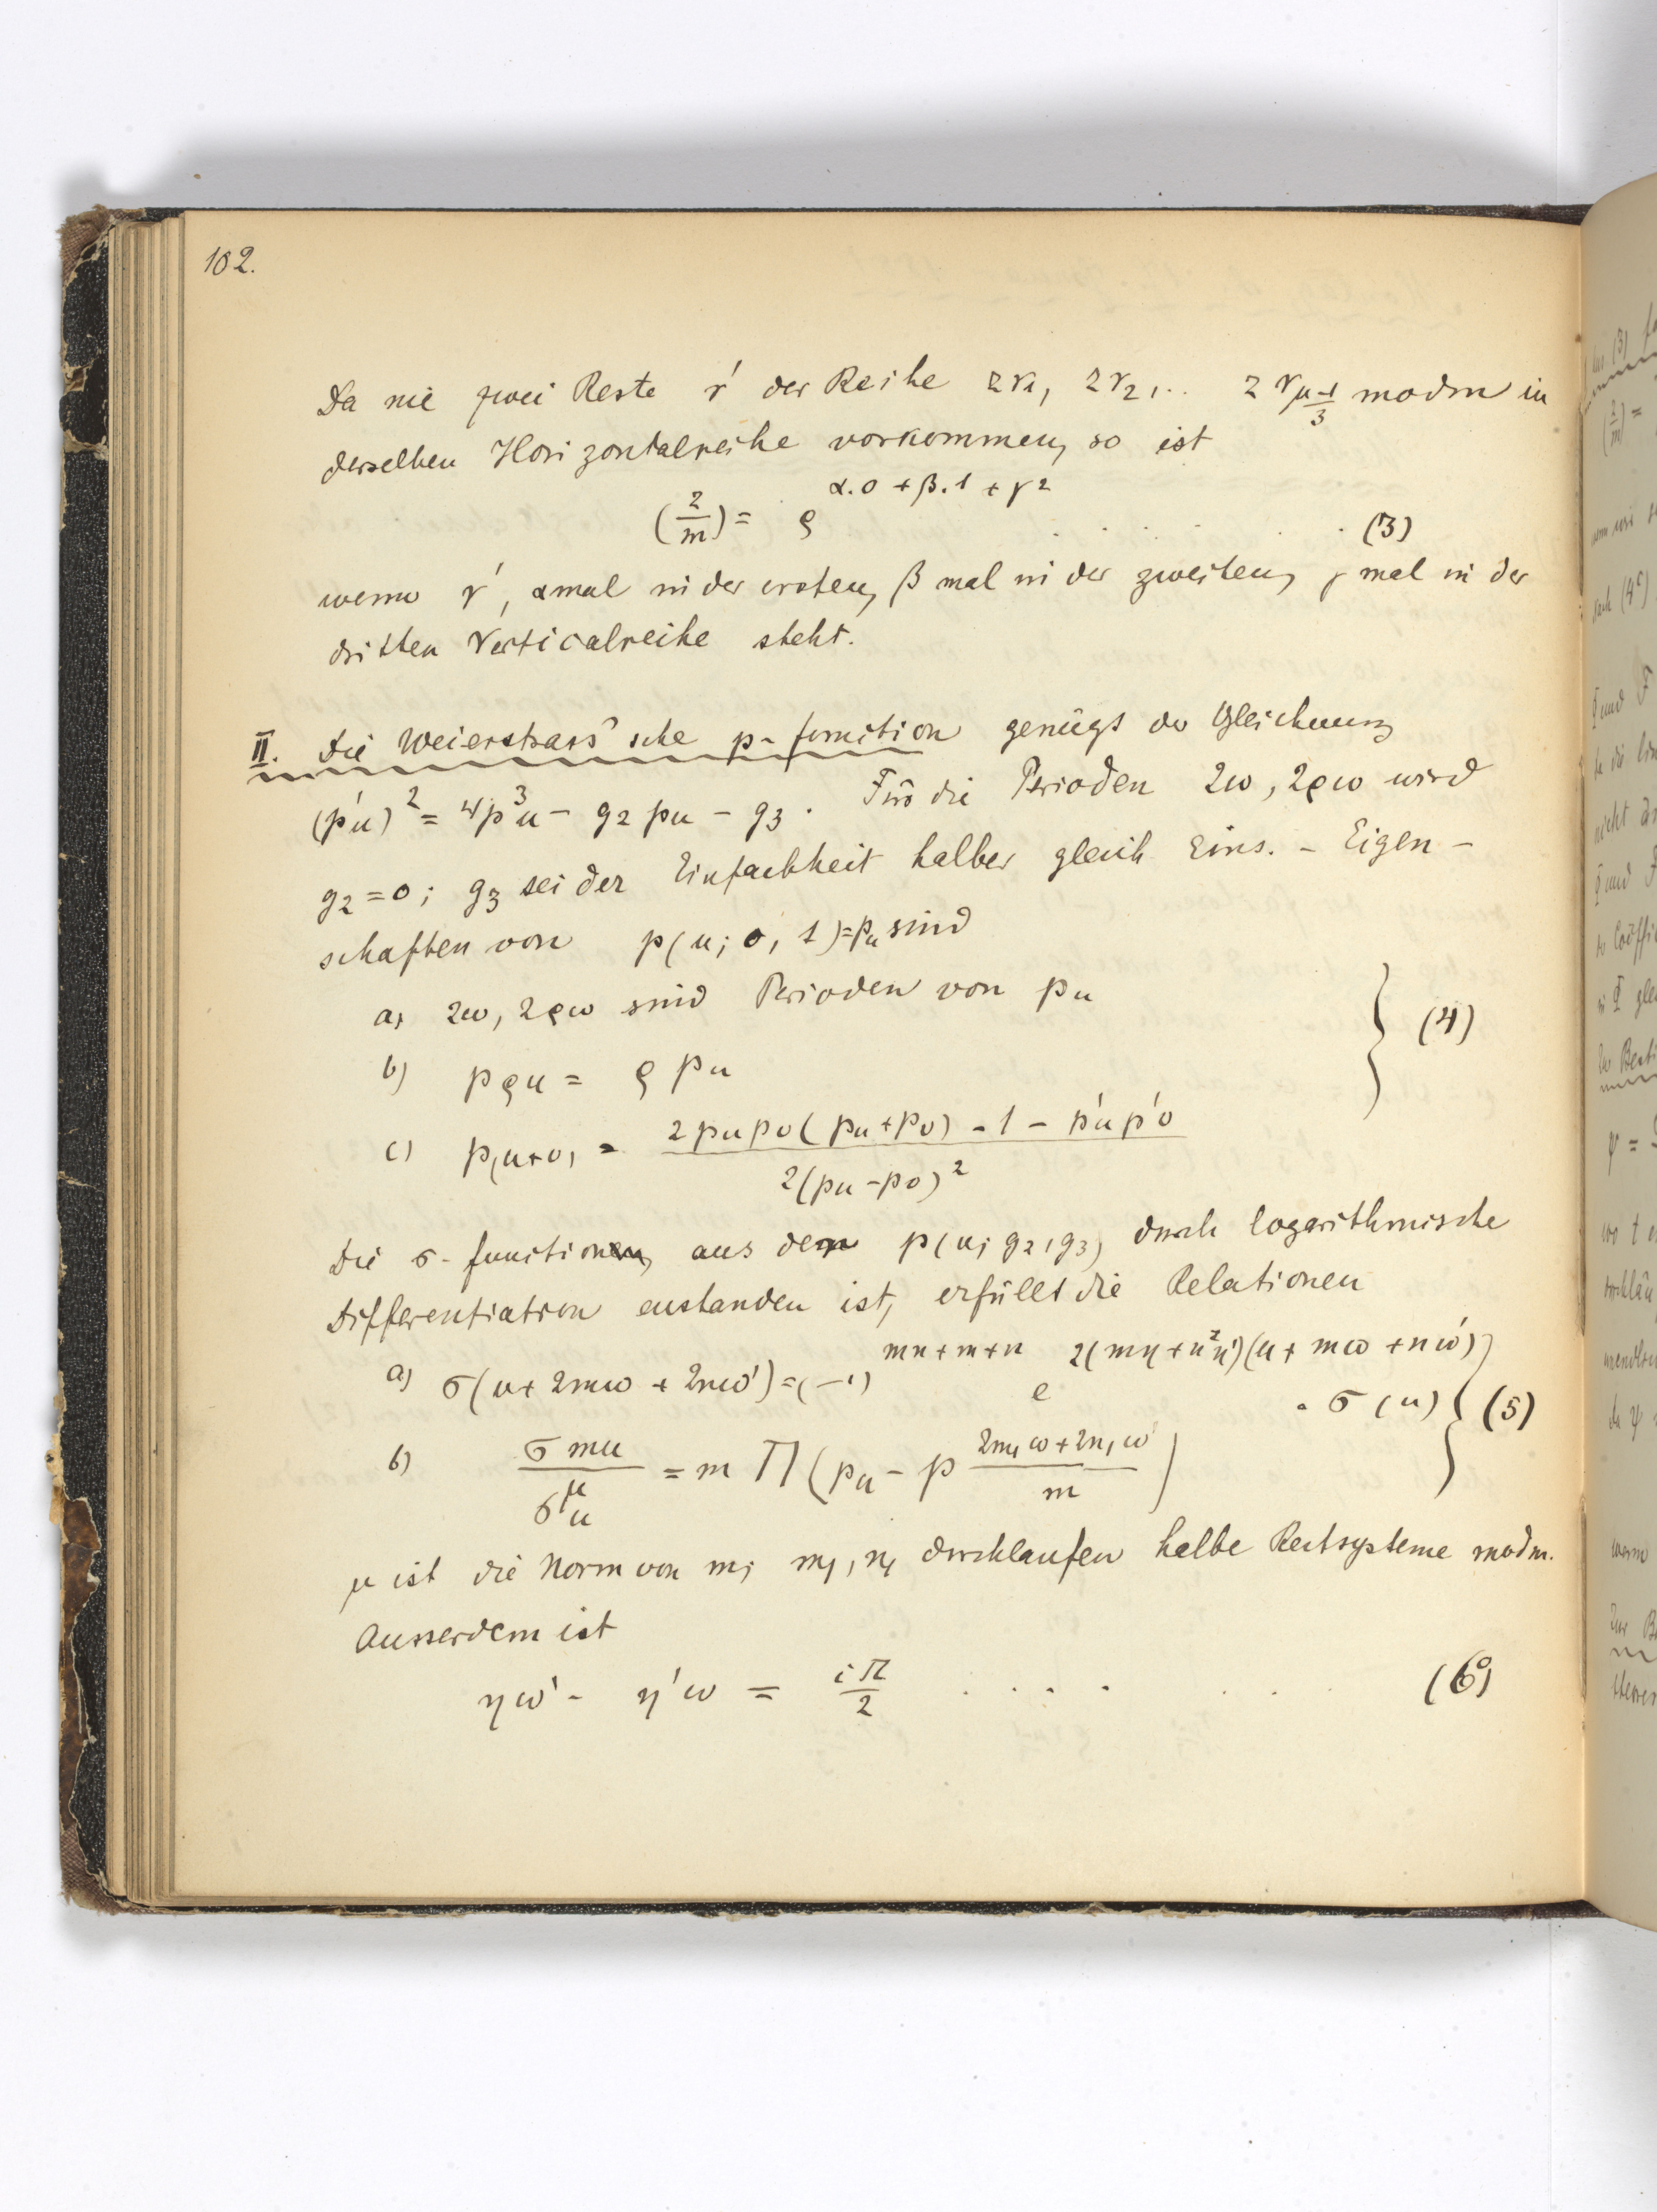 102.
Da nie zwei Reste r' der Reihe 2r₁, 2r₂, .. 2r_{(μ-1)/3} mod m in
derselben Horizontalreihe vorkommen, so ist
(2/m) = ρ^{α.0 + β.1 + γ2} . . . . (3)
wenn r', α mal in der ersten, β mal in der zweiten, γ mal in der
dritten Verticalreihe steht.
II. Die Weierstrass'sche p-function genügt der Gleichung
(p'u)² = 4p³u - g₂ pu - g₃. Für die Perioden 2ω, 2ρω wird
g₂ = 0; g₃ sei der Einfachheit halber gleich Eins. - Eigen-
schaften von p(u; 0, 1) = pu sind
a) 2ω, 2ρω sind Perioden von pu
b) pρu = ρ pu
(4)
c) p(u+v) = (2pu pv (pu + pv) - 1 - p'u p'v) / 2(pu - pv)²
Die σ-function, aus der p(u; g₂, g₃) durch logarithmische
Differentiation enstanden ist, erfüllt die Relationen
a) σ(u + 2mω + 2nω') = (-1)^{mn+m+n} e^{2(mη + nη')(u + mω + nω')} . σ(u)
(5)
b) σmu / σ^μ u = m Π (pu - p (2m₁ω + 2n₁ω')/m)
μ ist die Norm von m; m₁, n₁ durchlaufen halbe Restsysteme mod m.
Ausserdem ist
ηω' - η'ω = iπ/2 . . . . . . . (6)